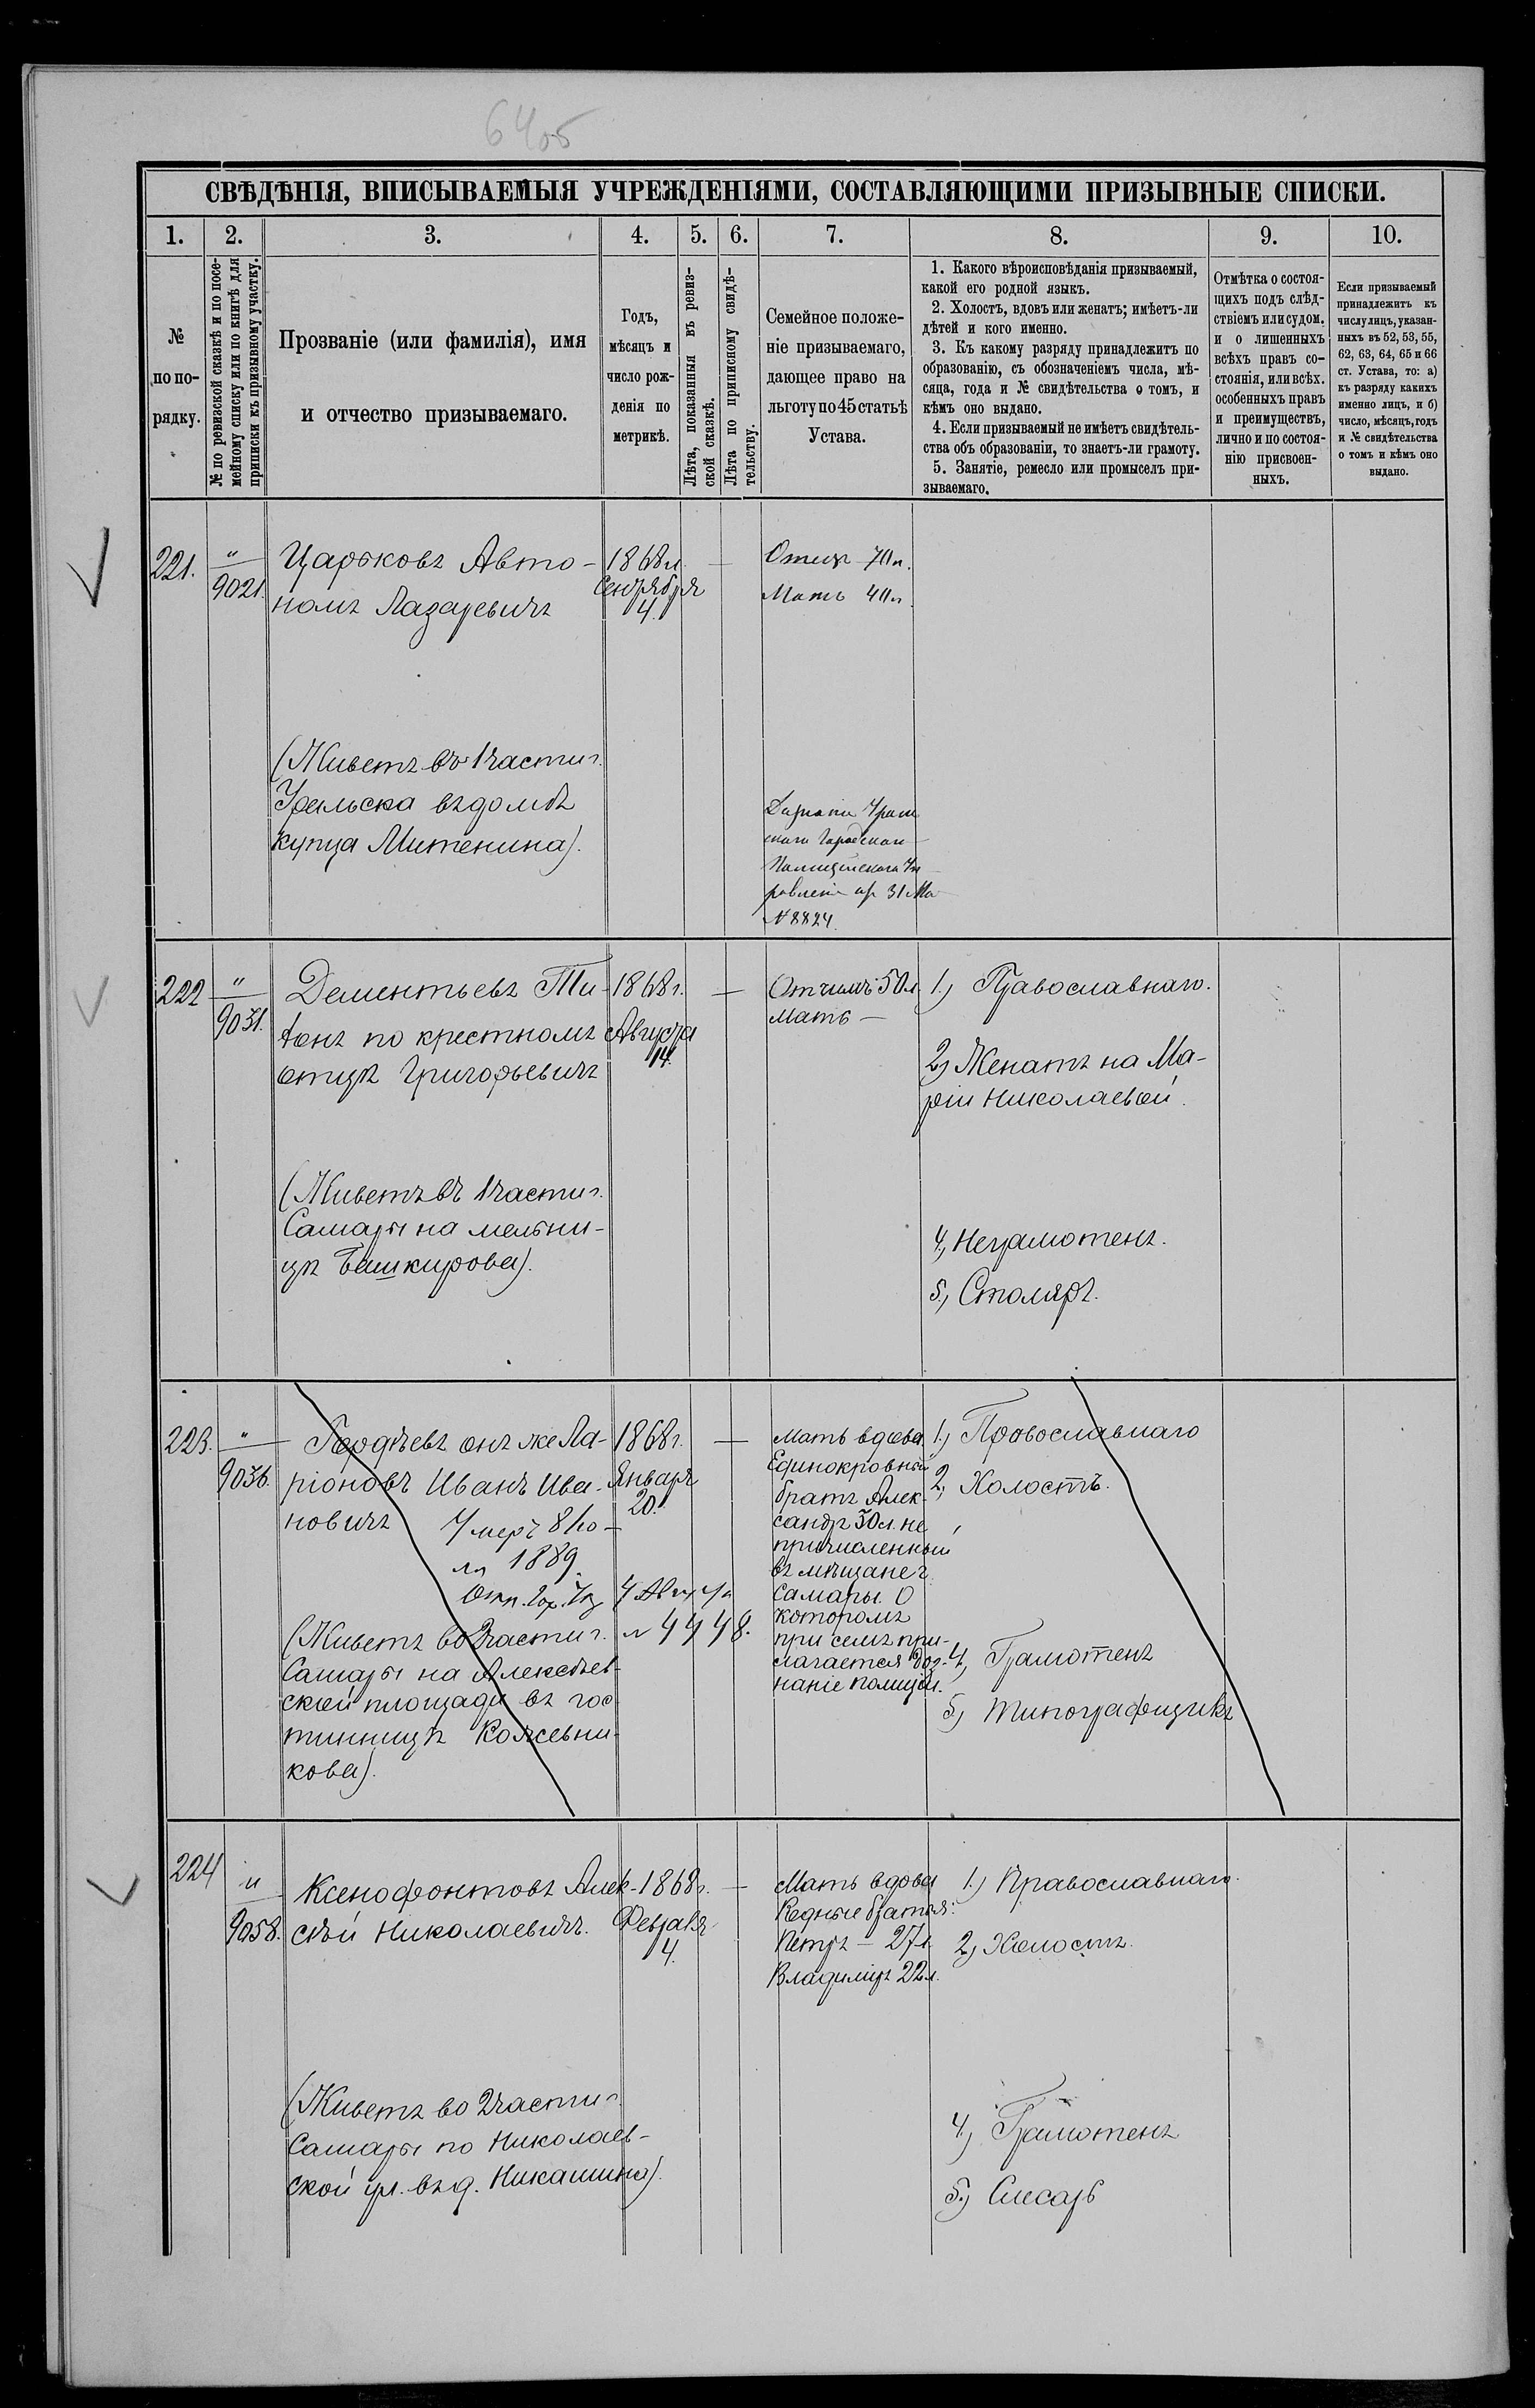 64об
СВѢДѢНІЯ, ВПИСЫВАЕМЫЯ УЧРЕЖДЕНІЯМИ, СОСТАВЛЯЮЩИМИ ПРИЗЫВНЫЕ СПИСКИ.
1. 2. 3. 4. 5. 6. 7. 8. 9. 10.
№
по по-
рядку.
№ по ревизской сказкѣ и по посе-
мейному списку или по книгѣ для
приписки къ призывному участку.
Прозваніе (или фамилія), имя
и отчество призываемаго.
Годъ,
мѣсяцъ и
число рож-
денія по
метрикѣ.
Лѣта, показанныя въ ревиз-
ской сказкѣ.
Лѣта по приписному свидѣ-
тельству.
Семейное положе-
ніе призываемаго,
дающее право на
льготу по 45 статьѣ
Устава.
1. Какого вѣроисповѣданія призываемый,
какой его родной языкъ.
2. Холостъ, вдовъ или женатъ; имѣетъ-ли
дѣтей и кого именно.
3. Къ какому разряду принадлежитъ по
образованію, съ обозначеніемъ числа, мѣ-
сяца, года и № свидѣтельства о томъ, и
кѣмъ оно выдано.
4. Если призываемый не имѣетъ свидѣтель-
ства объ образованіи, то знаетъ-ли грамоту.
5. Занятіе, ремесло или промыселъ при-
зываемаго.
Отмѣтка о состоя-
щихъ подъ слѣд-
ствіемъ или судом.
и о лишенныхъ
всѣхъ правъ со-
стоянія, или всѣх.
особенныхъ правъ
и преимуществъ,
лично и по состоя-
нію присвоен-
ныхъ.
Если призываемый
принадлежитъ къ
числу лицъ, указан-
ныхъ въ 52, 53, 55,
62, 63, 64, 65 и 66
ст. Устава, то: а)
къ разряду какихъ
именно лицъ, и б)
число, мѣсяцъ, годъ
и № свидѣтельства
о томъ и кѣмъ оно
выдано.
221.
"
9021.
Царьковъ Авто-
номъ Лазаревичъ
1868 г.
Сентября
4.
—
Отецъ 70 л.
Мать 40 л.
(Живетъ въ 1 части г.
Уральска въ домѣ
купца Митенина).
31 Ма
№ 8824.
222
"
9031.
Дементьевъ Ти-
тонъ по крестномъ
отцѣ Григорьевичъ
1868 г.
Августа
14.
—
Отчимъ 50 л.
Мать —
1.) Православнаго.
2.) Женатъ на Ма-
ріи Николаевой.
(Живетъ въ 1 части г.
Самары на мельни-
цѣ Башкирова).
4.) Неграмотенъ.
5.) Столяръ.
223.
"
9036.
Гордѣевъ онъ же Ла-
ріоновъ Иванъ Ива-
новичъ
1868 г.
Января
20.
—
Умеръ 8 Ію-
ля 1889.
4 Августа
№ 4448.
(Живетъ во 2 части г.
Самары на Алексѣев-
ской площади въ гос-
тинницѣ Кожевни-
кова).
Мать вдова
Единокровный
братъ Алек-
сандръ 30 л. не
причисленный
въ мѣщане г.
Самары. О
которомъ
при семъ при-
лагается доз-
наніе полиціи.
1.) Православнаго
2.) Холостъ.
4.) Грамотенъ
5.) Типографщикъ
224
"
9058.
Ксенофонтовъ Алек-
сѣй Николаевичъ.
1868 г.
Февраля
4.
—
Мать вдова
Родные братья:
Петръ — 27 л.
Владиміръ 22 л.
1.) Православнаго.
2.) Холостъ.
(Живетъ во 2 части г.
Самары по Николаев-
ской ул. въ д. Никашина).
4.) Грамотенъ
5.) Слесарь